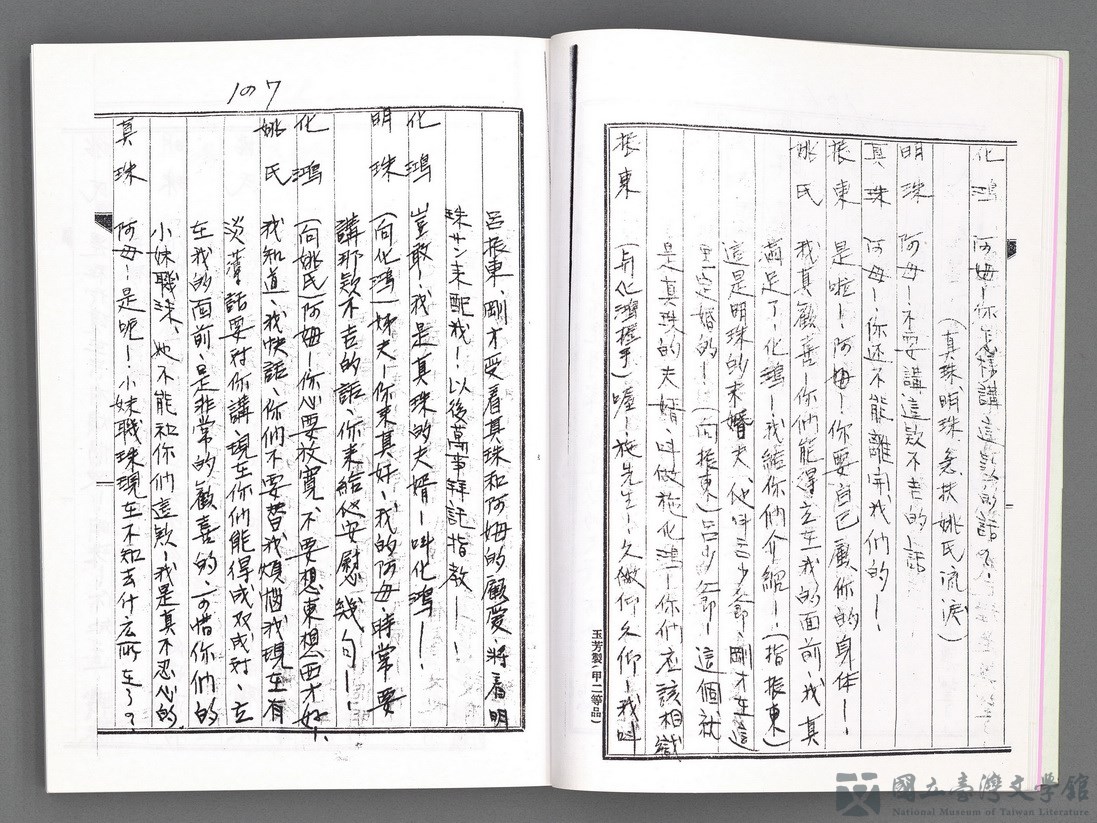 化鴻 阿姆！你怎樣講這款的話了．
（真珠、明珠、急扶姚氏、流淚）
明珠 阿母！不要講這款不老的話
真珠 阿母！你还不能離開我們的！
振東 是啦！阿姆！你要自己顧你的身体！
姚氏 我真歡喜！你們能得立在我的面前、我真
滿足了、化鴻！我給你們介紹！（指振東）
這是明珠的未婚夫、他叫呂少卿、剛才在這
里定婚的！（向振東）呂少卿！這個就
是真珠的夫婿、叫做施化鴻！你們应該相識
振東 （與化鴻握手）喔！施先生！久做仰久仰！我叫
107
呂振東、剛才受着真珠和阿姆的顧愛、將着明
珠サン来配我！以後萬事拜託指教！！
化鴻 豈敢！我是真珠的夫婿！叫化鴻！
明珠 （向化鴻）姊夫！你来真好、我的阿母、時常要
講那款不吉的話、你来給他安慰幾句！
化鴻 （向姚氏）阿姆！你心要放寬、不要想東想西才好！
姚氏 我知道、我快話、你們不要替我煩惱我現在有
淡薄話要对你講現在你們能得成双成对、立
在我的面前、是非常的歡喜的、可惜你們的
小妹職珠、她不能和你們這款！我是真不忍心的．
真珠 阿母！是呢！小妹職珠現在不知去什広所在了？
玉芳製（甲二等品）
國立臺灣文學館
National Museum of Taiwan Literature